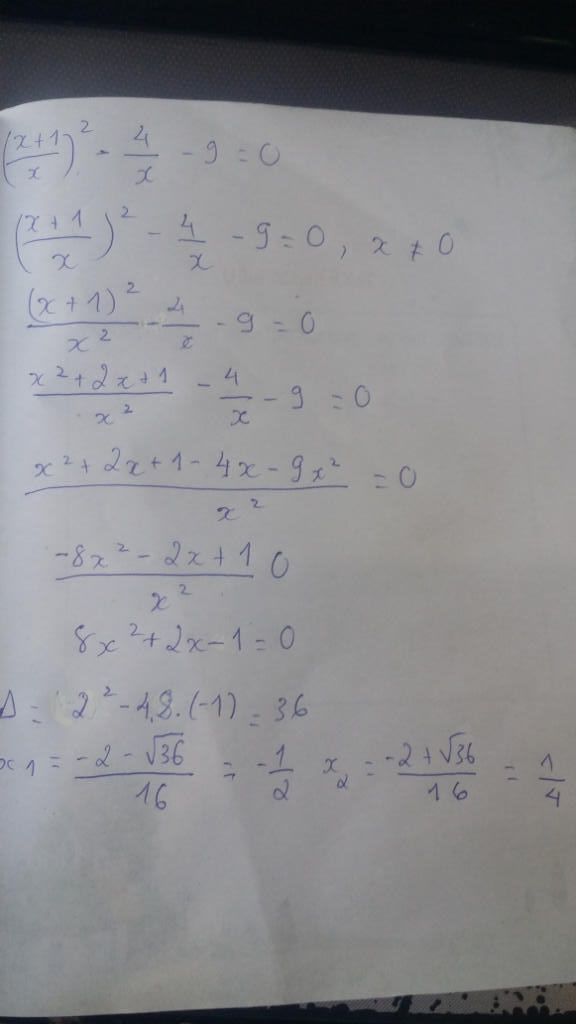 (x+1/x)² - 4/x - 9 = 0
(x+1/x)² - 4/x - 9 = 0, x ≠ 0
(x+1)²/x² - 4/x - 9 = 0
x²+2x+1/x² - 4/x - 9 = 0
x²+2x+1-4x-9x²/x² = 0
-8x²-2x+1/x² 0
8x²+2x-1=0
Δ = 2²-4.8.(-1) = 36
x1 = -2-√36/16 = -1/2 x₂ = -2+√36/16 = 1/4